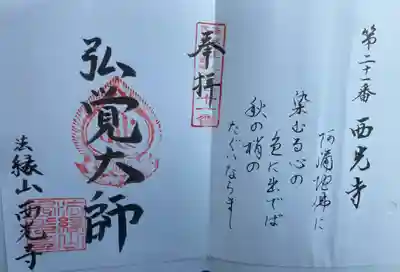 第二十一番 西光寺
阿弥陀佛に
染むる心の
色に出でば
秋の梢の
たぐいならまし
奉拝
弘覚大師
法縁山西光寺